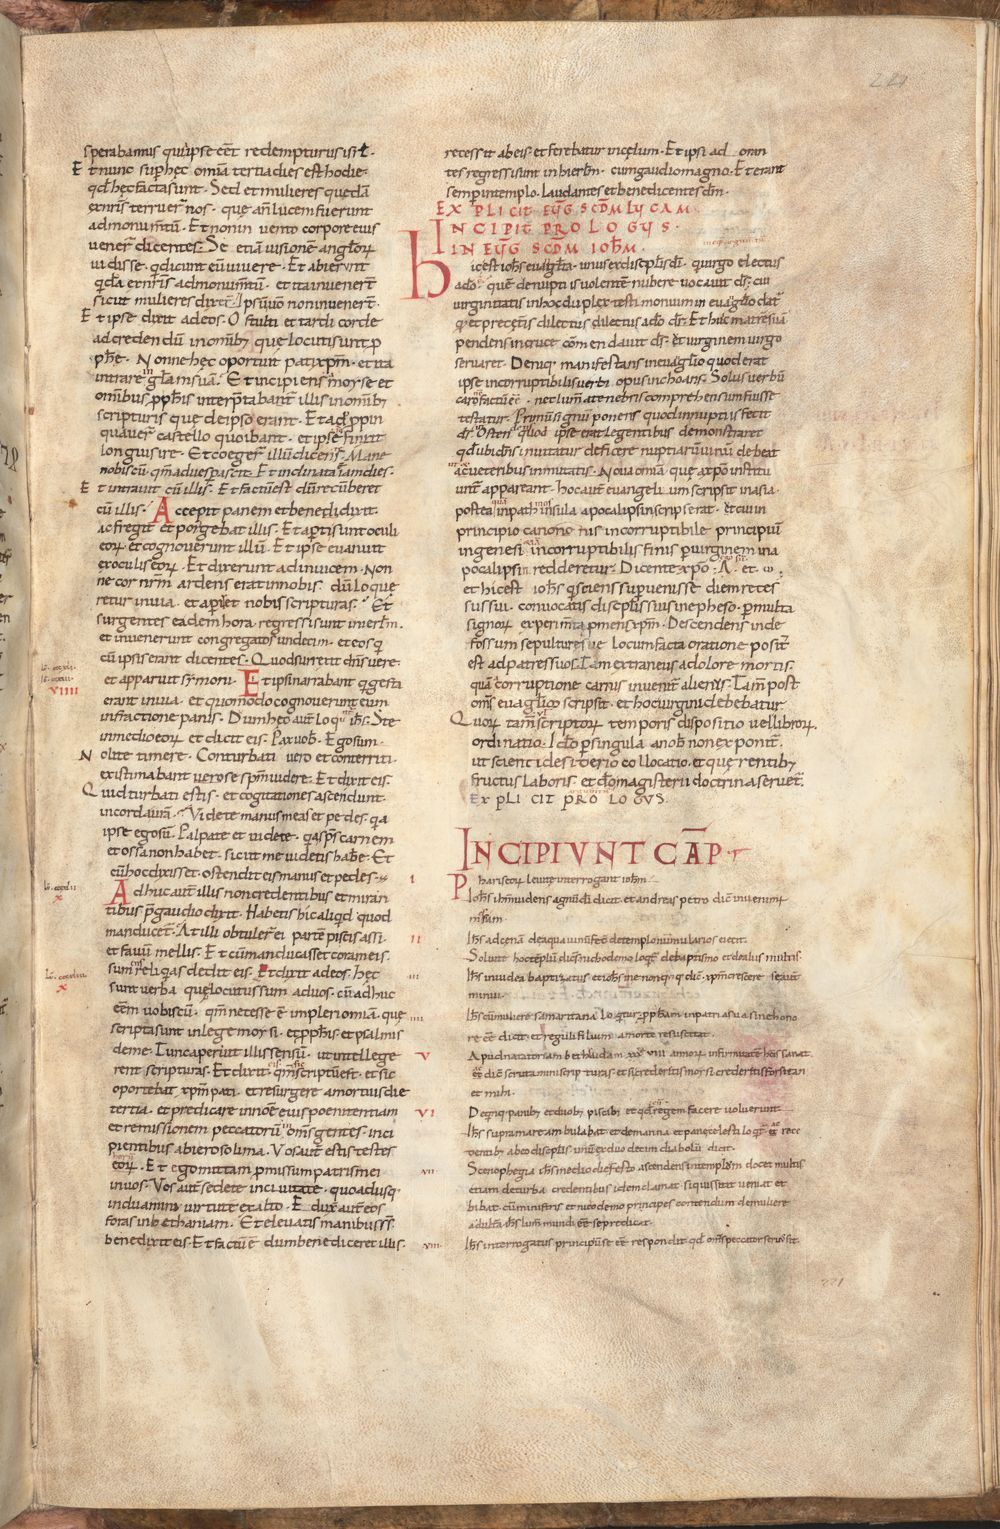 sperabamus quia ipse eet redempturus isrl.
Et nunc sup hęc omnia tertia dies est hodie.
qd hęc facta sunt. Sed et mulieres quedā
ex nris terruer nos. quę an lucem fuerunt
ad monumtū. Et non invento corpore eius
vener dicentes. Se etiā visionē anglorū
vidisse. q dicunt eū vivere. Et abierunt
qdā ex nris ad monumtū. et ita invener
sicut mulieres dixer. Ipsū vo non invener.
Et ipse dixit ad eos. O stulti et tardi corde
ad credendū in omnib; que locuti sunt p
phę. Nonne hęc oportuit pati xpm. et ita
intrare in glam suā. Et incipiens a moyse et
omibus pphis interptabant illis in omib;
scripturis que de ipso erant. Et adppin
quaver castello quo ibant. et ipse se finxit
longius ire. Et coeger illū dicens. Mane
nobiscū qm advesperascit. Et inclinata iam dies.
Et intravit cū illis. Et factū est dū recūberet
cū illis. Accepit panem et benedixit.
ac fregit et porgebat illis. Et apti sunt oculi
eorū. et cognoverunt illū. Et ipse evanuit
ex oculis eorū. Et dixerunt ad invicem. Non
ne cor nrm ardens erat in nobis. dū loque
retur in via. et apiret nobis scripturas. Et
surgentes eadem hora. regressi sunt in ierlm.
et invenerunt congregatos undecim. et eos q
cū ipsis erant dicentes. Quod surexit dns vere.
et apparuit symoni. Et ipsi narabant q gesta
VIIII
erant in via. et quomodo cognoverunt eum
in fractione panis. Dum hęc aut loqr ihs. Ste
in medio eorū et dicit eis. Pax vob. Ego sum.
Nolite timere. Conturbati vero et conterriti.
existimabant vero se spm videre. Et dixit eis.
Quid turbati estis. et cogitationes ascendunt.
in corda vra. Videte manus meas et pedes. qa
ipse ego sū. Palpate et videte. qa sps carnem
et ossa non habet. sicut me videtis habe. Et
cū hoc dixisset. ostendit eis manus et pedes.
Adhuc aut illis non credentibus et miran
x
tibus p gaudio dixit. Habetis hic aliqd quod
manducet. At illi obtuler ei partē piscis assi.
et favū mellis. Et cū manducasset corā eis.
sumens reliqas dedit eis. Et dixit ad eos. Hęc
x
sunt verba quę locutus sum ad vos. cū adhuc
eēm vobiscū. qm necesse ē impleri omīa. que
scripta sunt in lege moysi. et pphis et psalmis
de me. Tunc aperuit illis sensū. ut intellege
rent scripturas. Et dixit eis. qm sic scriptū est. et sic
oportebat xpm pati. et resurgere a mortuis die
tertia. et predicare in noē eius poenitentiam
et remissionem peccatorū in oms gentes. inci
pientibus ab ierosolima. Vos aut estis testes
horū. Et ego mittam pmissum patris mei
in vos. Vos aut sedete in civitate. quo adusq;
induamini virtute ex alto. Eduxit aut eos
foras in bethaniam. Et elevatis manibus s.
benedixit eis. Et factū ē dum benediceret illis.
recessit ab eis. et ferebatur in cęlum. Et ipsi ad oran
tes regressi sunt in hierlm. cum gaudio magno. Et erant
semp in templo. Laudantes et benedicentes dm.
EXPLICIT EVG SCDM LVCAM
INCIPIT PROLOGVS.
IN EVG SCDM IOHM.
Hic est iohs evglista. unus ex discplis di. qui virgo electus
a dō. quē de nuptiis volentē nubere vocavit ds. cui
virginitatis in hoc duplex testimonium in evaglio dat
q et pre ceteris dilectus a dō dr. Et huic matrē suā
pendens in cruce cōmendavit ds. ut virginem virgo
servaret. Deniq; manifestans in evaglio quod erat
ipse incorruptibilis verbi opus inchoans. Solus verbū
caro factū eē. nec lum a tenebris comprehensum fuisse
testatur. Primū signū ponens quod in nuptiis fecit
ds. Ostendens quod ipse erat legentibus demonstraret
qd ubi dns invitatur deficere nuptiarū vinū debeat
ac veteribus inmutatis. Nova omīa. quę a xpo institu
unt appareant. Hoc aut evangelium scripsit in asia.
postea quam in pathmos insula apocalipsin scripserat. et cui in
principio canonis incorruptibile principiū
in genesi. incorruptibilis finis p virginem in a
pocalipsi redderetur. Dicente xpo. A. et ω.
et hic est iohs q sciens supvenisse diem reces
sus sui. convocatis discplis suis in epheso. p multa
signorū experimta pmens xpm. Descendens in de
fossum sepulturę suę locum facta oratione posit
est ad patres suos. Tam extraneus a dolore mortis.
quā a corruptione carnis invenit alienus. Tam post
oms evaglio scripsit. et hoc virgini debebatur.
Quorū tam scriptorū temporis dispositio vel librorū.
ordinatio. Ido p singula a nob non exponit.
ut scienti desiderio collocatio. et querentib;
fructus laboris. et do magisterii doctrina servet.
EXPLICIT PROLOGVS.
INCIPIVNT CAP
I
Phariseorū levitę interrogant iohm.
Iohs ihm videns agnū di dicit. et andreas petro dic invenim
messiam.
II
Ihs ad cenā de aqua vinū fec de templo nūmularios eiecit.
Solvite hoc templū dic nichodemo loqt de baptismo et de aliis multis.
III
Ihs in iudea baptizat
minui.
IIII
Ihs cū muliere samaritana loqtur. pphtam in patria sua sine hono
re eē dicit. et reguli filium a morte resuscitat.
V
Apud natatoriam bethsaidam XXXVIII annorū infirmitatē hns sanat.
et mihi.
VI
De qnq; panib; et duob; piscib; et qd regem facere voluerunt.
Ihs supra mare ambulabat. et de manna et pane cęlesti loqt
VII
Scenophegia ihs medio die festo ascendens in templum docet multis
etiam de turba credentibus idem clamat. si quis sitit veniat et
bibat. cū ministris et nicodemo principes contendunt. de muliere
adultā. ihs lum mundi se predicat.
VIII
Ihs interrogatus principiū se eē respondit. qd oms peccator servus sit.
221